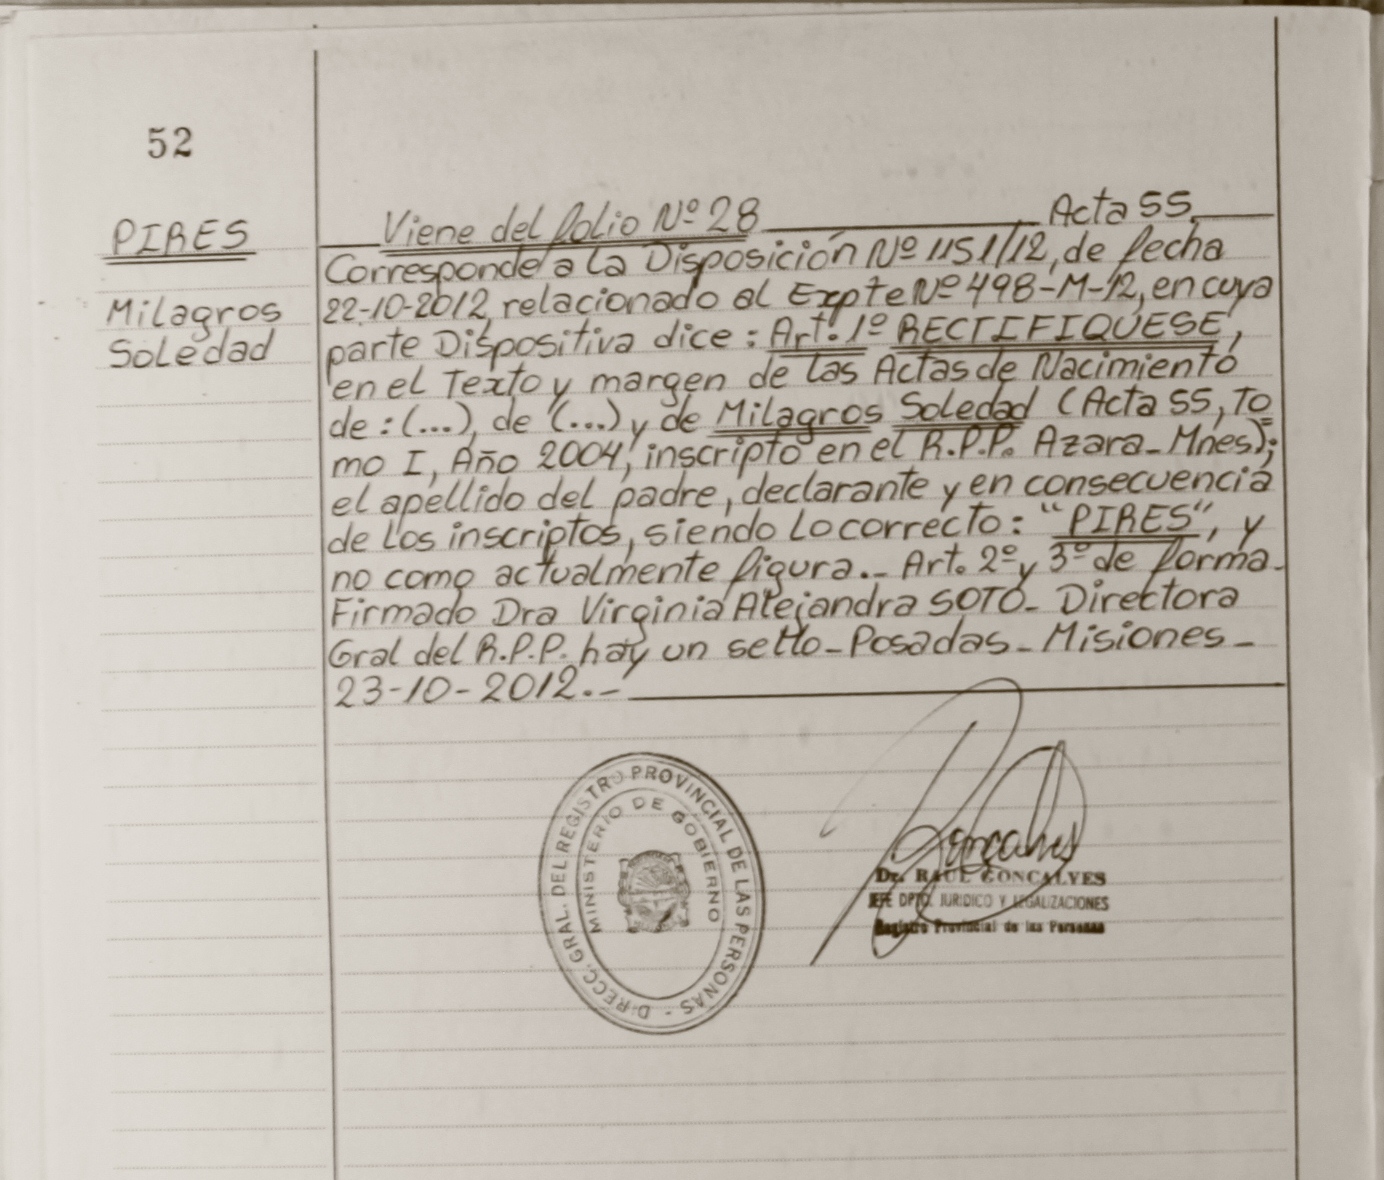 52
PIRES
Milagros
Soledad
Viene del folio Nº 28 Acta 55.
Corresponde a la Disposición Nº 1151/12, de fecha
22-10-2012, relacionado al Expte Nº 498-M-12, en cuya
parte Dispositiva dice: Art. 1º RECTIFIQUESE,
en el Texto y margen de las Actas de Nacimiento
de: (...), de (...) y de Milagros Soledad (Acta 55, To
mo I, Año 2004, inscripto en el R.P.P. Azara-Mnes);
el apellido del padre, declarante y en consecuencia
de los inscriptos, siendo lo correcto: "PIRES", y
no como actualmente figura.- Art. 2º y 3º de forma-
Firmado Dra Virginia Alejandra SOTO- Directora
Gral del R.P.P. hay un sello-Posadas-Misiones-
23-10-2012.-
DIRECC. GRAL. DEL REGISTRO PROVINCIAL DE LAS PERSONAS -
MINISTERIO DE GOBIERNO
Gonçalves
Dr. RAUL GONCALVES
JEFE DPTO. JURIDICO Y LEGALIZACIONES
Registro Provincial de las Personas